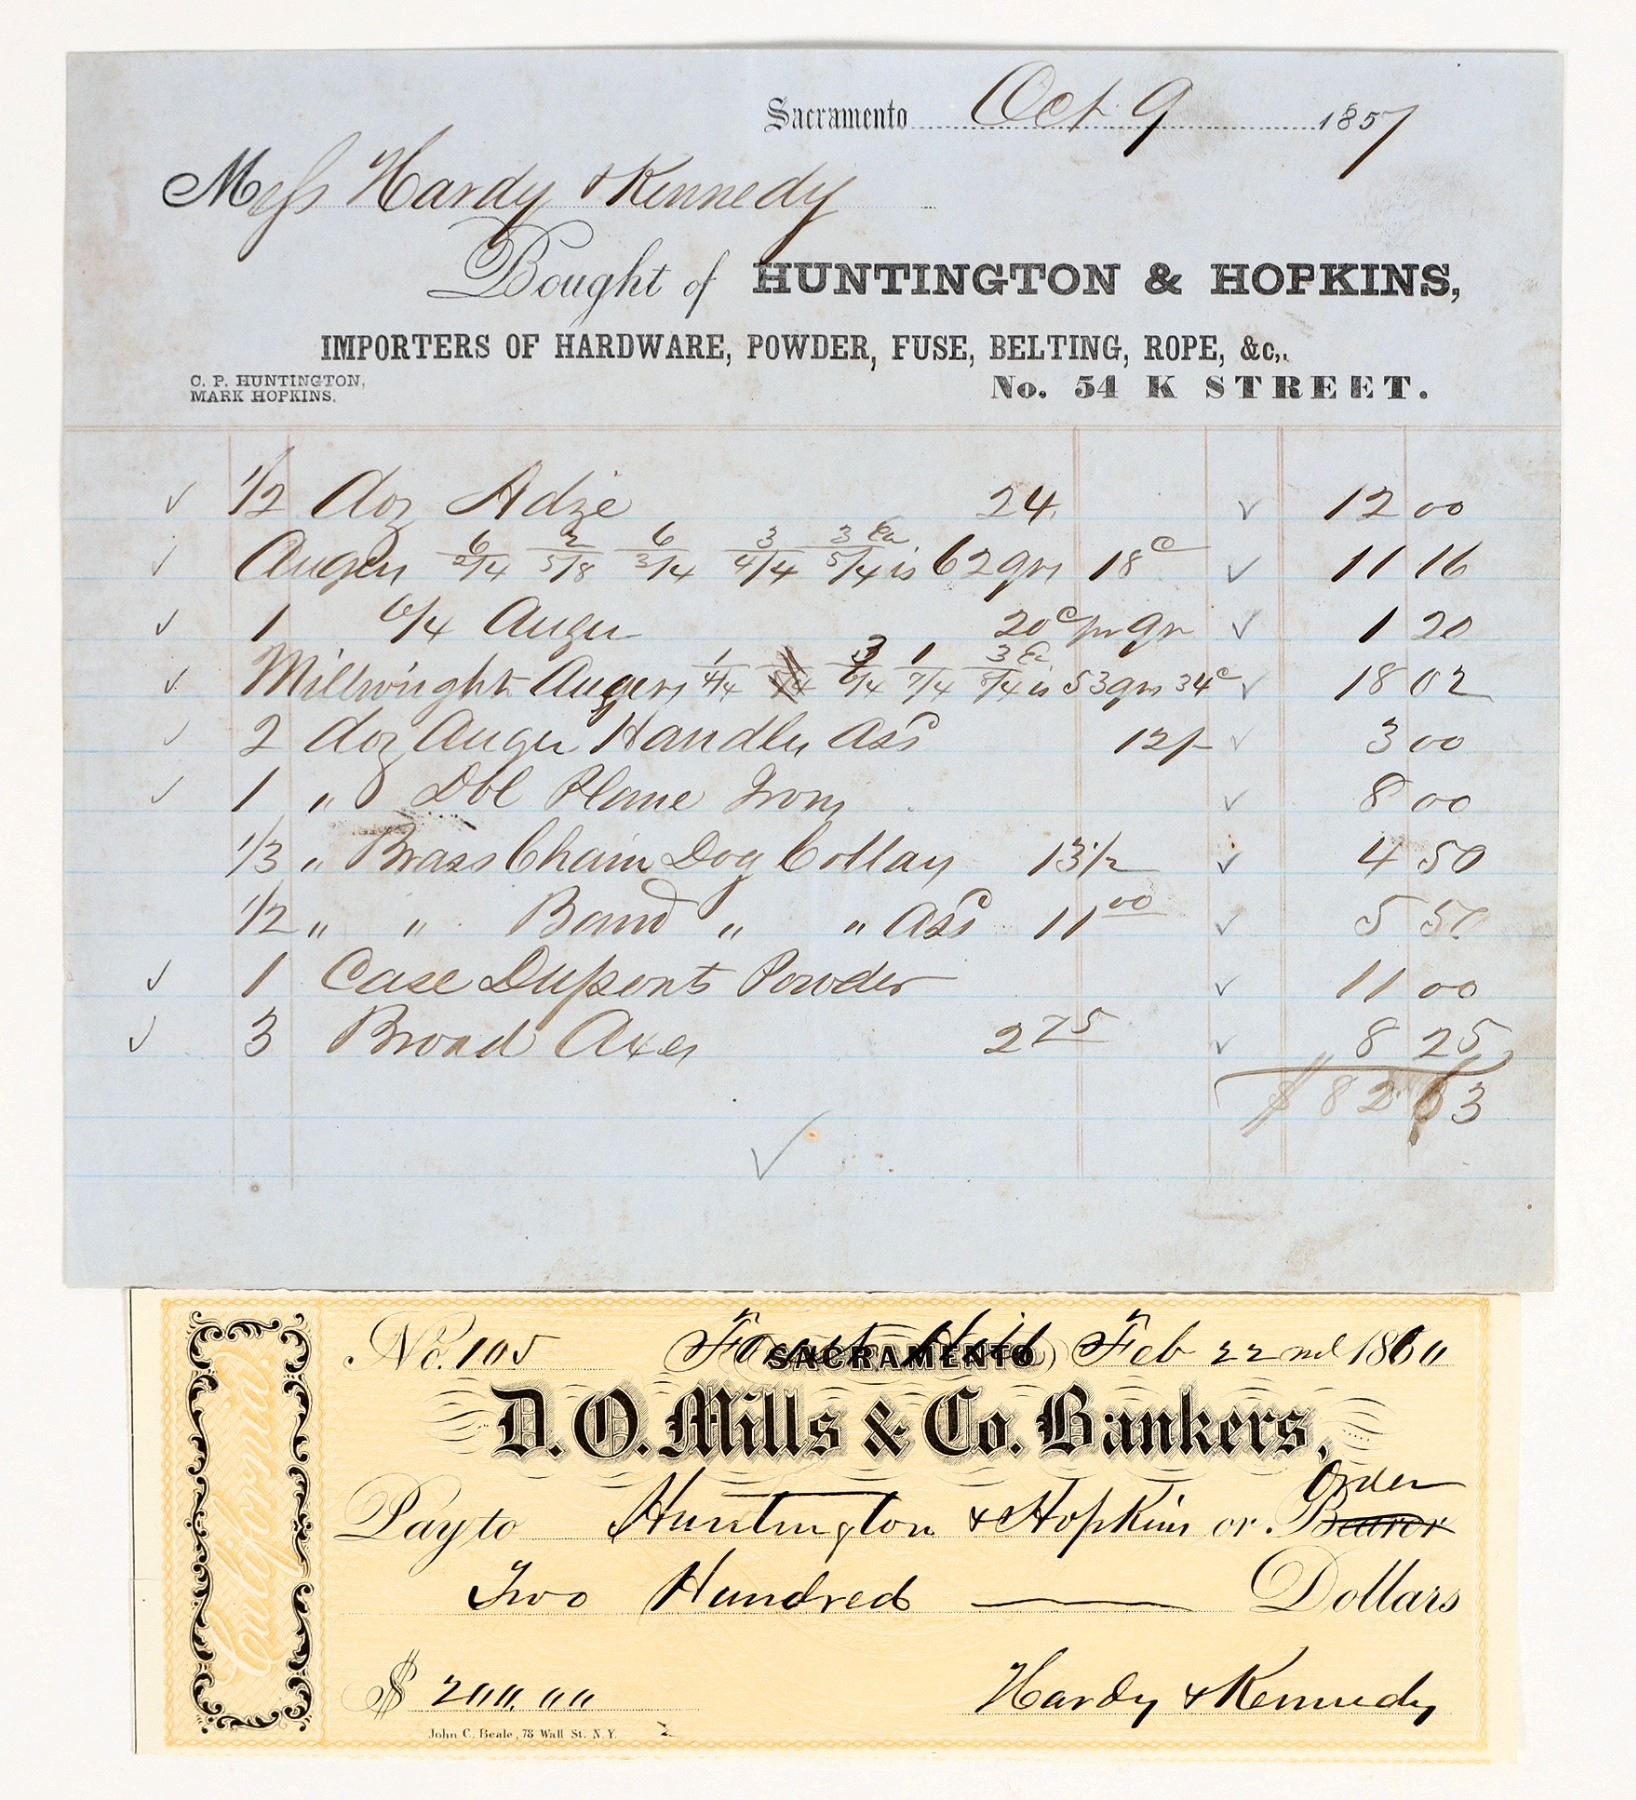 Sacramento Oct 9 1857
Mess Hardy & Kennedy
Bought of HUNTINGTON & HOPKINS,
IMPORTERS OF HARDWARE, POWDER, FUSE, BELTING, ROPE, &c,.
C. P. HUNTINGTON,
MARK HOPKINS.
No. 54 K STREET.
1/2 doz Adze 24 12 00
Augers 6 2/4 2 5/8 6 3/4 3 4/4 3 5/4 Ea is 62 qrs 18c 11 16
1 6/4 Auger 20c pr qr 1 20
Millwright Augers 1 4/4 3 6/4 1 7/4 3 8/4 Ea is 53 qrs 34c 18 02
2 doz Auger Handles Ass 12/- 3 00
1 " Dbl Plane Irons 8 00
1/3 " Brass Chain Dog Collars 13 1/2 4 50
1/2 " " Band " " Ass 11 00 5 50
1 Case Duponts Powder 11 00
3 Broad Axes 2 75 8 25
$ 82 63
California
No. 105 Forest Hill SACRAMENTO Feb 22nd 1860
D. O. Mills & Co. Bankers,
Order
Pay to Huntington & Hopkins or Bearer
Two Hundred Dollars
$ 200.00 Hardy & Kennedy
John C. Beale, 78 Wall St. N.Y.